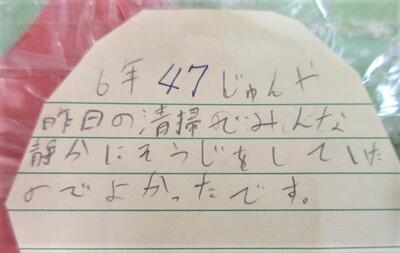 6年 47 じゅんや
昨日の清掃でみんな
静かにそうじをしていた
のでよかったです。